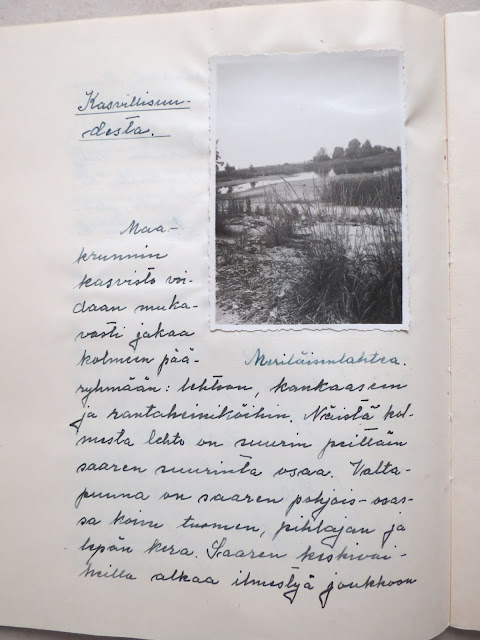 Kasvillisuu-
desta.
Maa-
krunnin
kasvisto voi-
daan muka-
vasti jakaa
kolmeen pää-
Meriläisenlahtea.
ryhmään: lehtoon, kankaaseen
ja rantaheiniköihin. Näistä kol-
mesta lehto on suurin peittäin
saaren suurinta osaa. Valta-
puuna on saaren pohjois-osas-
sa koivu tuomen, pihlajan ja
lepän kera. Saaren keskivai-
heilla alkaa ilmestyä joukkoon